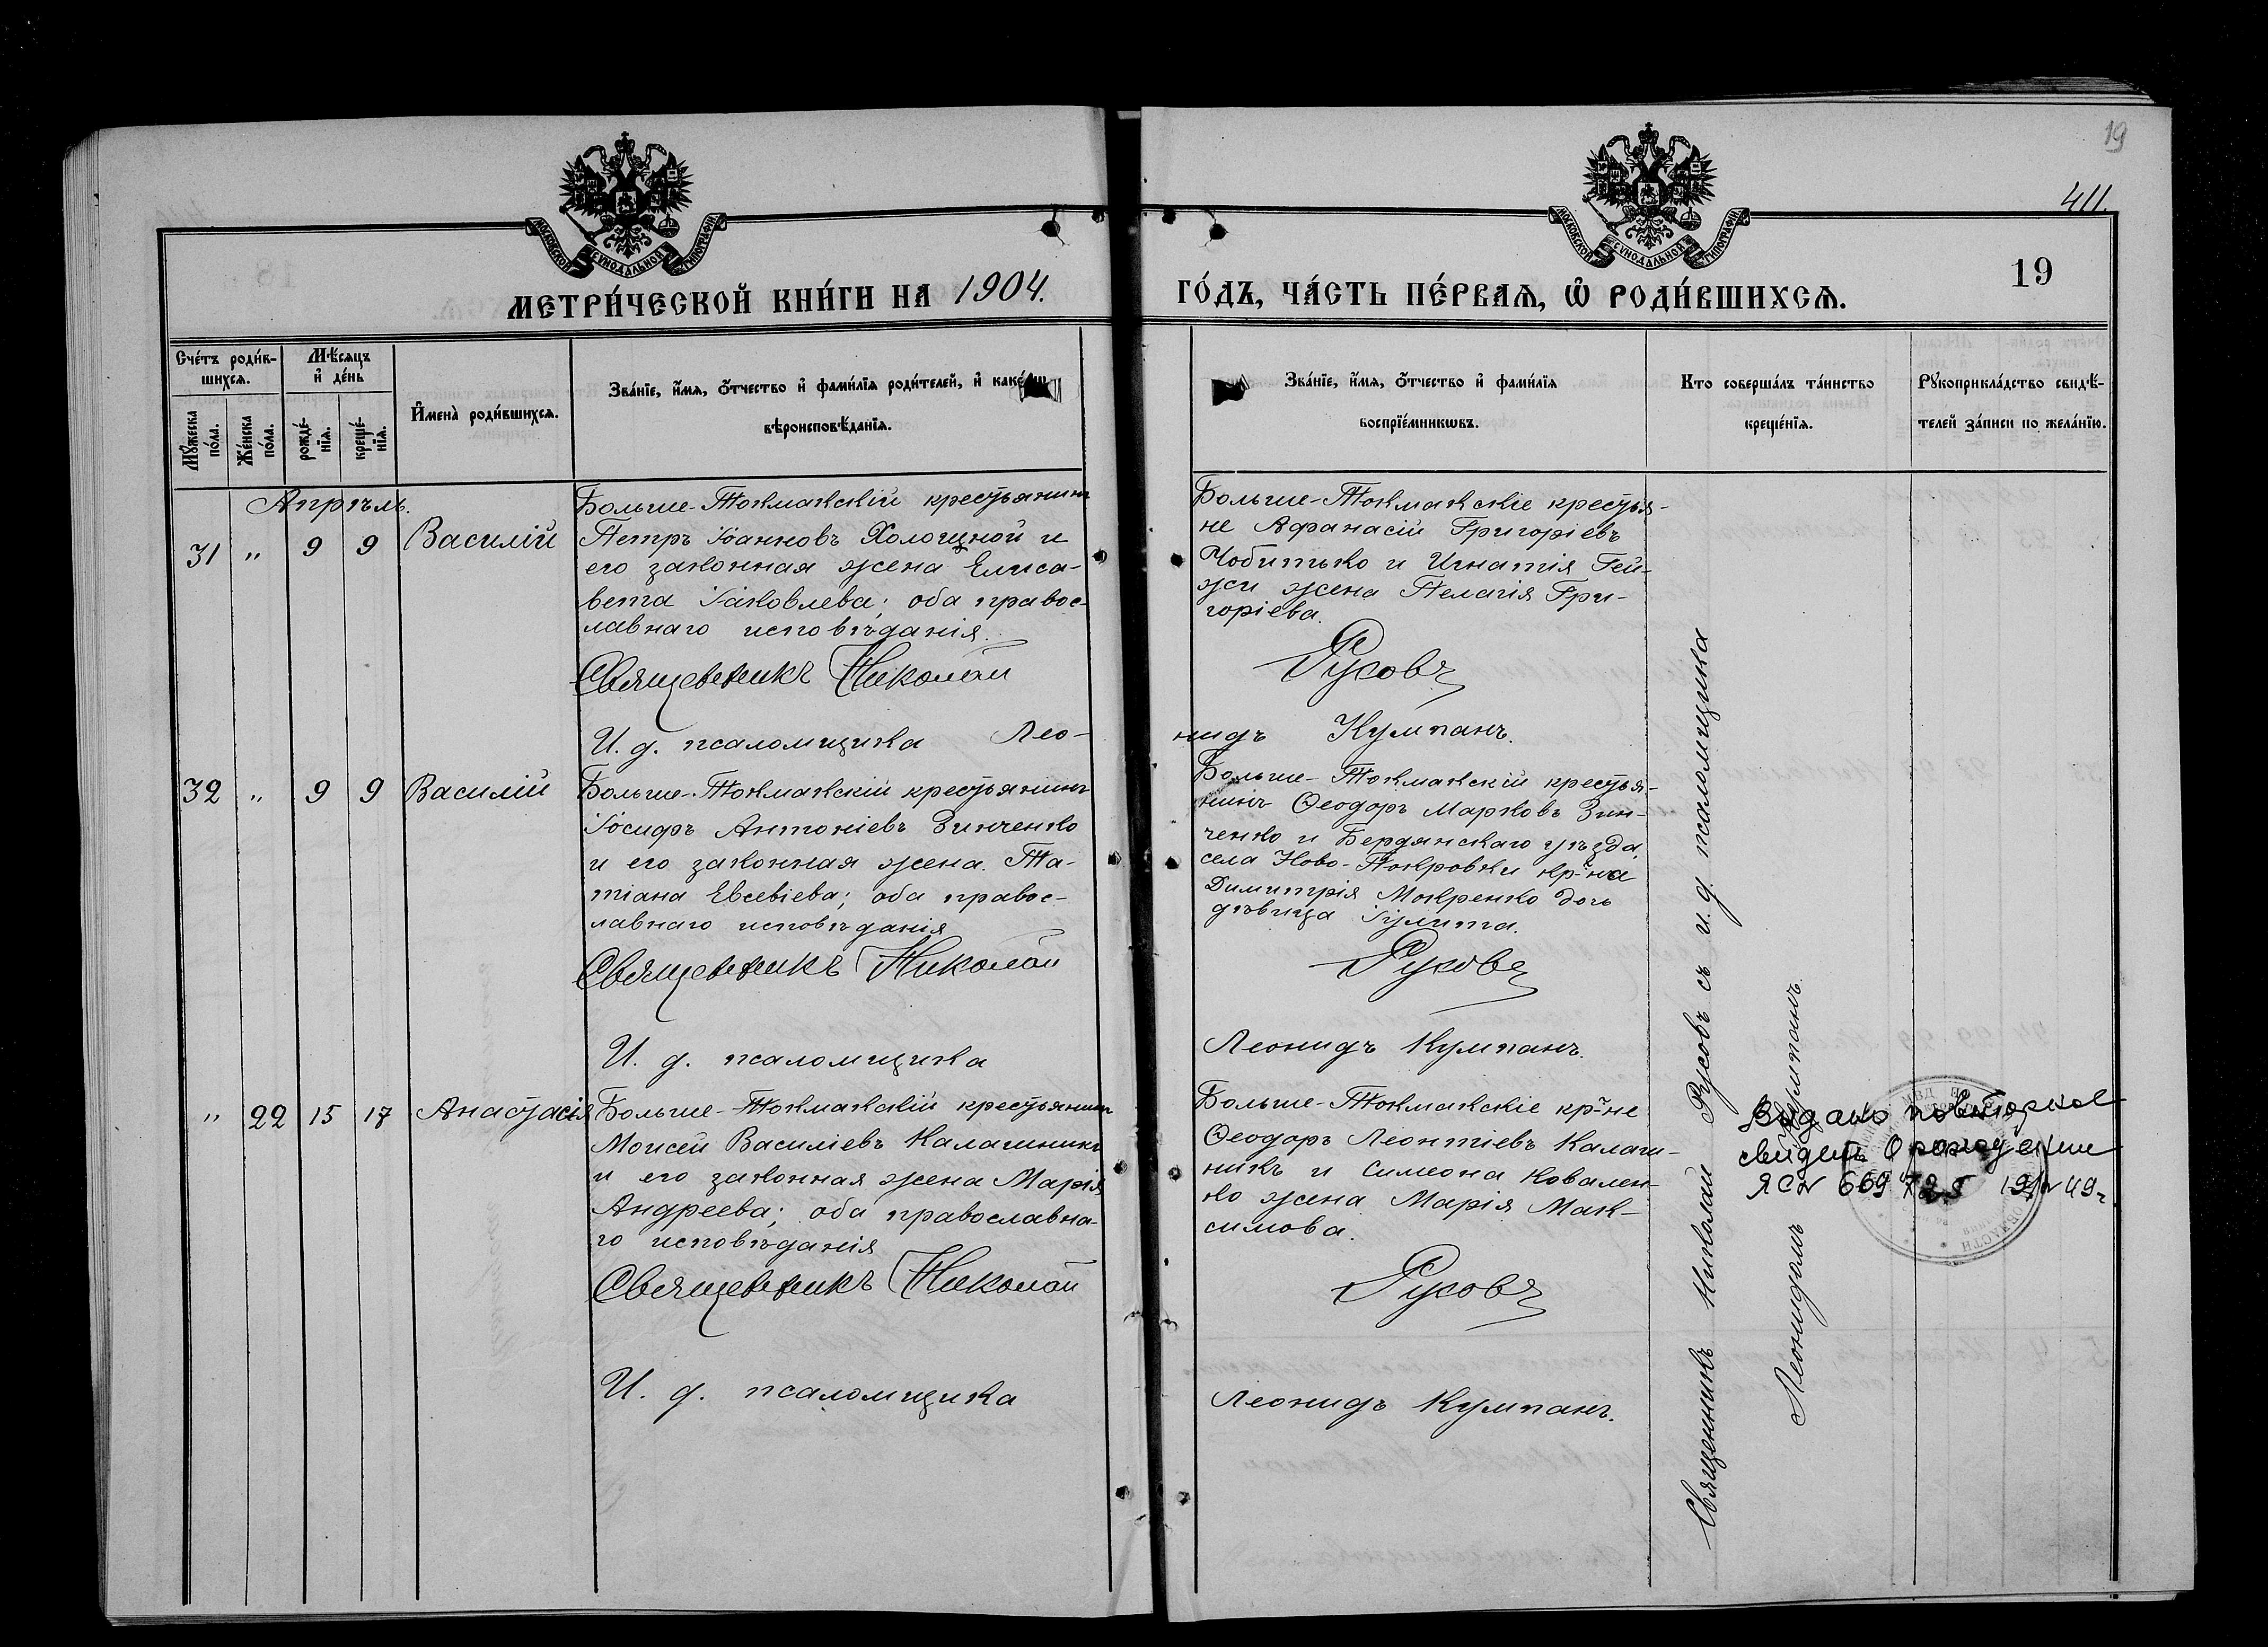 19
411.
МОСКОВСКОЙ СѴНОДАЛЬНОЙ ТИПОГРАФІИ
МОСКОВСКОЙ СѴНОДАЛЬНОЙ ТИПОГРАФІИ
МЕТРИ́ЧЕСКОЙ КНИ́ГИ НА 1904.
ГО́ДЪ, ЧА́СТЬ ПЕ́РВАѦ, Ѿ РОДИ́ВШИХСѦ.
19
Сче́тъ роди́в-
шихсѧ.
Мꙋ́жеска по́ла.
Же́нска по́ла.
Мѣ́сяцъ
и҆ де́нь
рожде́-
нїѧ.
креще́-
нїѧ.
И҆мена̀ роди́вшихсѧ.
Зва́нїе, и҆́мѧ, ѻ҆́тчество и҆ фами́лїѧ роди́телей, и҆ како́гѡ
вѣроисповѣ́данїѧ.
Зва́нїе, и҆́мѧ, ѻ҆́тчество и҆ фами́лїѧ
воспрїе́мникѡвъ.
Кто соверша́лъ та́инство
креще́нїѧ.
Рꙋкоприкла́дство свидѣ́-
телей за́писи по жела́нїю.
Апрѣль.
31 " 9 9 Василій
Больше-Токмакскій крестьянинъ
Петръ Іоанновъ Холощной и
его законная жена Елиса-
вета Іаковлева; оба правос-
лавнаго исповѣданія.
Священникъ Николай
И. д. псаломщика Лео-
Больше-Токмакскіе крестья-
не Афанасій Григоріевъ
Чобитько и Игнатія Гей-
жи жена Пелагія Гри-
горіева.
Русовъ
нидъ Кумпанъ.
32 " 9 9 Василій
Больше-Токмакскій крестьянинъ
Іосифъ Антоніевъ Зинченко
и его законная жена Та-
тіана Евсевіева; оба правос-
лавнаго исповѣданія
Священникъ Николай
И. д. псаломщика
Больше-Токмакскій крестья-
нинъ Ѳеодоръ Марковъ Зин-
ченко и Бердянскаго уѣзда,
села Ново-Покровки кр-на
Димитрія Мокренко дочь
дѣвица Іулита.
Русовъ
Леонидъ Кумпанъ.
" 22 15 17 Анастасія
Больше-Токмакскій крестьянинъ
Моисей Василіевъ Калашникъ
и его законная жена Марія
Андреева; оба православна-
го исповѣданія
Священникъ Николай
И. д. псаломщика
Больше-Токмакскіе кр-не
Ѳеодоръ Леонтіевъ Калаш-
никъ и Симеона Ковален-
ко жена Марія Мак-
симова.
Русовъ
Леонидъ Кумпанъ.
Священникъ Николай Русовъ съ и. д. псаломщика
Леонидомъ Кумпанъ.
Видано повторное
свидет. о рождении
ЯС№ 669
49г